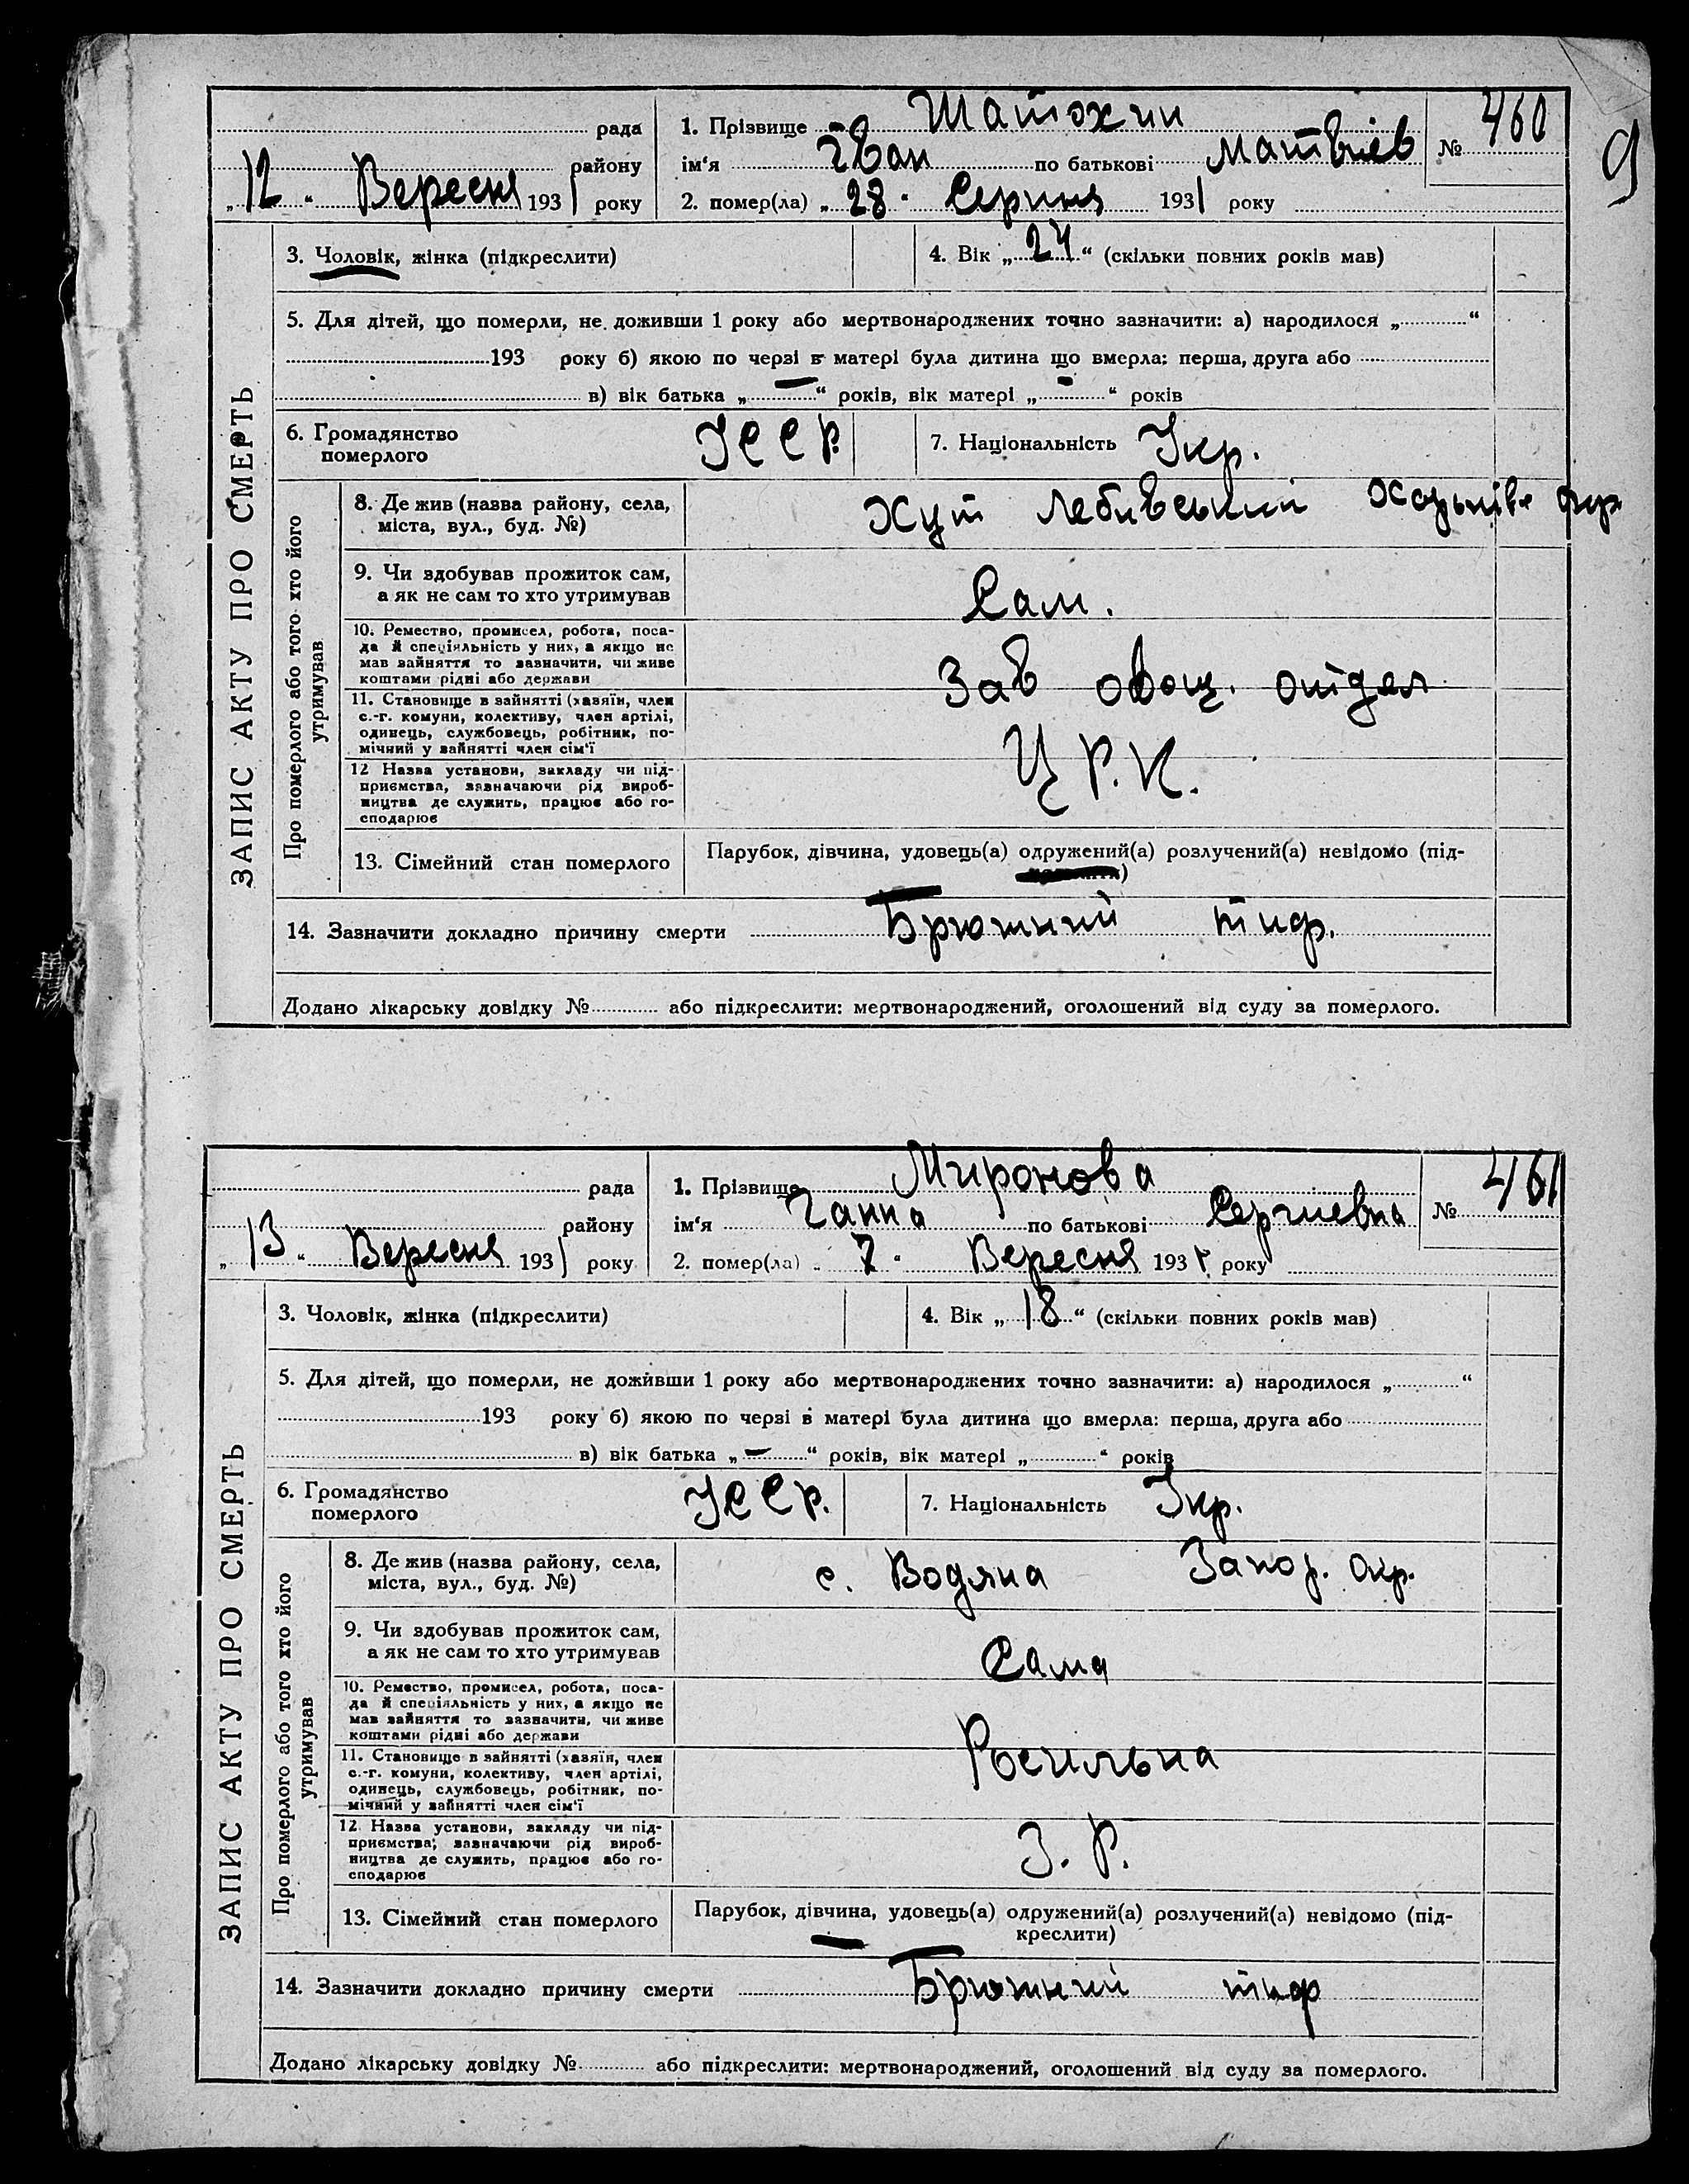 9
ЗАПИС АКТУ ПРО СМЕРТЬ
рада
району
„12“ Вересня 1931 року
1. Прізвище Шатохин
ім‘я Іван по батькові Матвіев
2. помер(ла) „28“ Серпня 1931 року
№ 460
3. Чоловік, жінка (підкреслити)
4. Вік „24“ (скільки повних років мав)
5. Для дітей, що померли, не доживши 1 року або мертвонароджених точно зазначити: а) народилося „ “
193 року б) якою по черзі в матері була дитина що вмерла: перша, друга або
в) вік батька „—“ років, вік матері „-“ років
6. Громадянство
померлого
УССР.
7. Національність Укр.
Про померлого або того хто його
утримував
8. Де жив (назва району, села,
міста, вул., буд. №)
Хут
9. Чи здобував прожиток сам,
а як не сам то хто утримував
Сам.
10. Ремество, промисел, робота, поса-
да й специяльність у них, а якщо не
мав зайняття то зазначити, чи живе
коштами рідні або держави
Зав овощ. отдел
11. Становище в зайнятті (хазяїн, член
с.-г. комуни, колективу, член артілі,
одинець, службовець, робітник, по-
мічний у зайнятті член сім‘ї
12 Назва установи, закладу чи під-
приємства, зазначаючи рід вироб-
ництва де служить, працює або го-
сподарює
Ц.Р.К.
13. Сімейний стан померлого
Парубок, дівчина, удовець(а) одружений(а) розлучений(а) невідомо (під-
креслити)
14. Зазначити докладно причину смерти Брюшний тиф.
Додано лікарську довідку № або підкреслити: мертвонароджений, оголошений від суду за померлого.
ЗАПИС АКТУ ПРО СМЕРТЬ
рада
району
„13“ Вересня 1931 року
1. Прізвище Миронова
ім‘я Ганна по батькові Сергиевна
2. помер(ла) „7“ Вересня 1931 року
№ 461
3. Чоловік, жінка (підкреслити)
4. Вік „18“ (скільки повних років мав)
5. Для дітей, що померли, не доживши 1 року або мертвонароджених точно зазначити: а) народилося „ “
193 року б) якою по черзі в матері була дитина що вмерла: перша, друга або
в) вік батька „—“ років, вік матері „ “ років
6. Громадянство
померлого
УССР.
7. Національність Укр.
Про померлого або того хто його
утримував
8. Де жив (назва району, села,
міста, вул., буд. №)
с. Водяна Запор. окр.
9. Чи здобував прожиток сам,
а як не сам то хто утримував
Сама
10. Ремество, промисел, робота, поса-
да й специяльність у них, а якщо не
мав зайняття то зазначити, чи живе
коштами рідні або держави
11. Становище в зайнятті (хазяїн, член
с.-г. комуни, колективу, член артілі,
одинець, службовець, робітник, по-
мічний у зайнятті член сім‘ї
12. Назва установи, закладу чи під-
приємства, зазначаючи рід вироб-
ництва де служить, працює або го-
сподарює
З. Р.
13. Сімейний стан померлого
Парубок, дівчина, удовець(а) одружений(а) розлучений(а) невідомо (під-
креслити)
14. Зазначити докладно причину смерти Брюшний тиф
Додано лікарську довідку № або підкреслити: мертвонароджений, оголошений від суду за померлого.